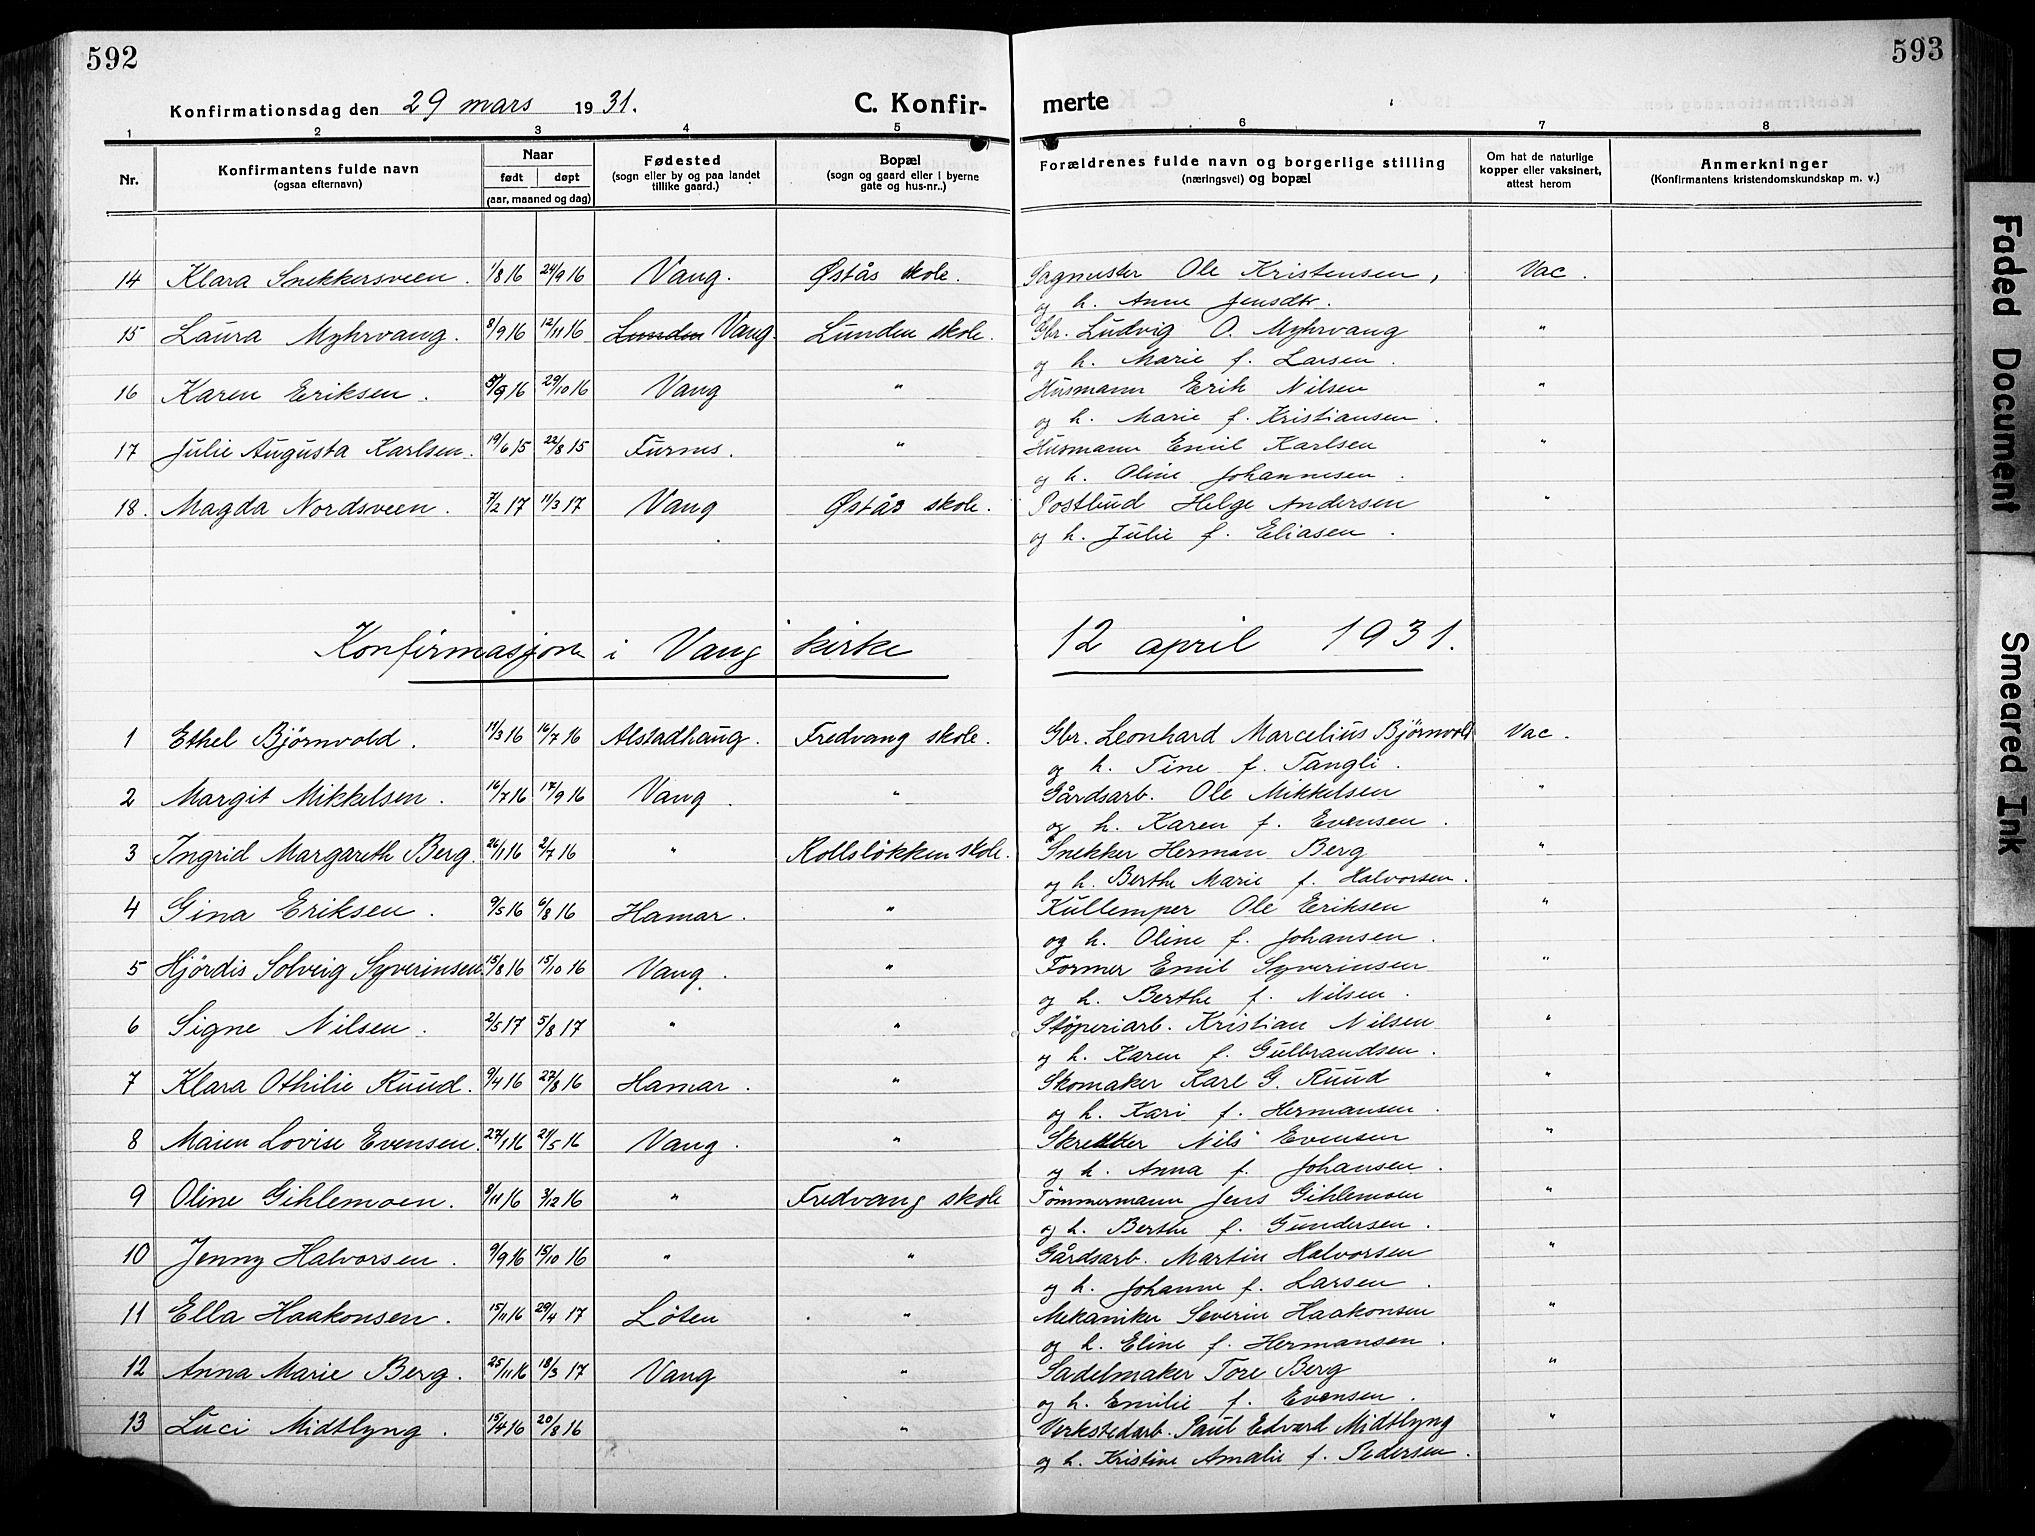 592
593
Konfirmationsdag den 29 mars 1931.
C. Konfir-
merte
1 2 3 4 5 6 7 8
Nr.
Konfirmantens fulde navn
(ogsaa efternavn)
Naar
født døpt
(aar, maaned og dag)
Fødested
(sogn eller by og paa landet
tillike gaard.)
Bopæl
(sogn og gaard eller i byerne
gate og hus-nr..)
Forældrenes fulde navn og borgerlige stilling
(næringsvei) og bopæl
Om hat de naturlige
kopper eller vaksinert,
attest herom
Anmerkninger
(Konfirmantens kristendomskundskap m. v.)
14 Klara Snekkersveen. 1/8 16 24/9 16 Vang. Østås skole. Sagmester Ole Kristensen, Vac.
og h. Anne Jensdtr.
15 Laura Myhrvang. 8/9 16 12/11 16 Lunden Vang. Lunden skole. Gbr. Ludvig O. Myhrvang "
og h. Marie f. Larsen.
16 Karen Eriksen. 5/9 16 29/10 16 Vang " Husmann Erik Nilsen "
og h. Marie f. Kristiansen.
17 Julie Augusta Karlsen. 19/6 15 22/8 15 Furnes. " Husmann Emil Karlsen "
og h. Oline Johannesen.
18. Magda Nordsveen. 7/2 17 11/3 17 Vang Østås skole. Postbud Helge Andersen "
og h. Julie f. Eliasen.
Konfirmasjon i Vang kirke 12 april 1931.
1 Ethel Bjørnvold. 11/3 16 16/7 16 Alstadhaug. Fredvang skole. Gbr. Leonhard Marcelius Bjørnvold Vac.
og h. Tine f. Tangli.
2 Margit Mikkelsen. 16/7 16 17/9 16 Vang. " Gårdsarb. Ole Mikkelsen "
og h. Karen f. Evensen.
3 Ingrid Margareth Berg. 26/1 16 2/7 16 " Kollsløkken skole. Snekker Herman Berg "
og h. Berthe Marie f. Halvorsen.
4 Gina Eriksen. 9/5 16 6/8 16 Hamar. " Kullemper Ole Eriksen "
og h. Oline f. Johansen.
5 Hjördis Solveig Syverinsen. 15/8 16 15/10 16 Vang. " Former Emil Syverinsen "
og h. Berthe f. Nilsen.
6 Signe Nilsen. 2/5 17 5/8 17 " " Støperiarb. Kristian Nilsen "
og h. Karen f. Gulbrandsen.
7 Klara Othilie Ruud. 9/4 16 27/8 16 Hamar. " Skomaker Karl G. Ruud "
og h. Kari f. Hermansen.
8 Maien Lovise Evensen. 27/1 16 21/5 16 Vang. " Skredder Nils Evensen "
og h. Anna f. Johansen.
9 Oline Gihlemoen. 8/11 16 3/12 16 " Fredvang skole Tømmermann Jens Gihlemoen "
og h. Berthe f. Gundersen.
10 Jenny Halvorsen. 9/9 16 15/10 16 " " Gårdsarb. Martin Halvorsen "
og h. Johanne f. Larsen.
11 Ella Haakonsen. 15/11 16 29/4 17 Løten " Mekaniker Severin Haakonsen "
og h. Eline f. Hermansen.
12 Anna Marie Berg. 25/11 16 18/3 17 Vang " Sadelmaker Tore Berg "
og h. Emilie f. Evensen.
13 Luci Midtlyng. 15/4 16 20/8 16 " Verkstedarb. Paul Edvard Midtlyng "
og h. Kristine Amalie f. Pedersen.
Faded Document
Smeared Ink